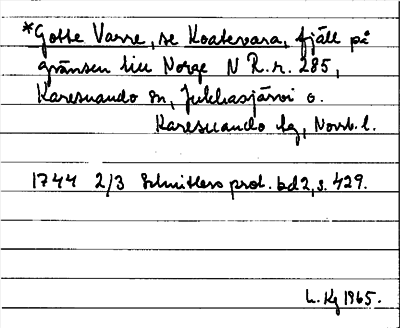 *Gotte Varre, se Koatevara, fjäll på
gränsen till Norge N R.r. 285,
Karesuando sn, Jukkasjärvi o.
Karesuando lg, Norrb. l.
1744 2/3 Schnitlers prot. bd 2, s. 429.
L. Kg 1965.